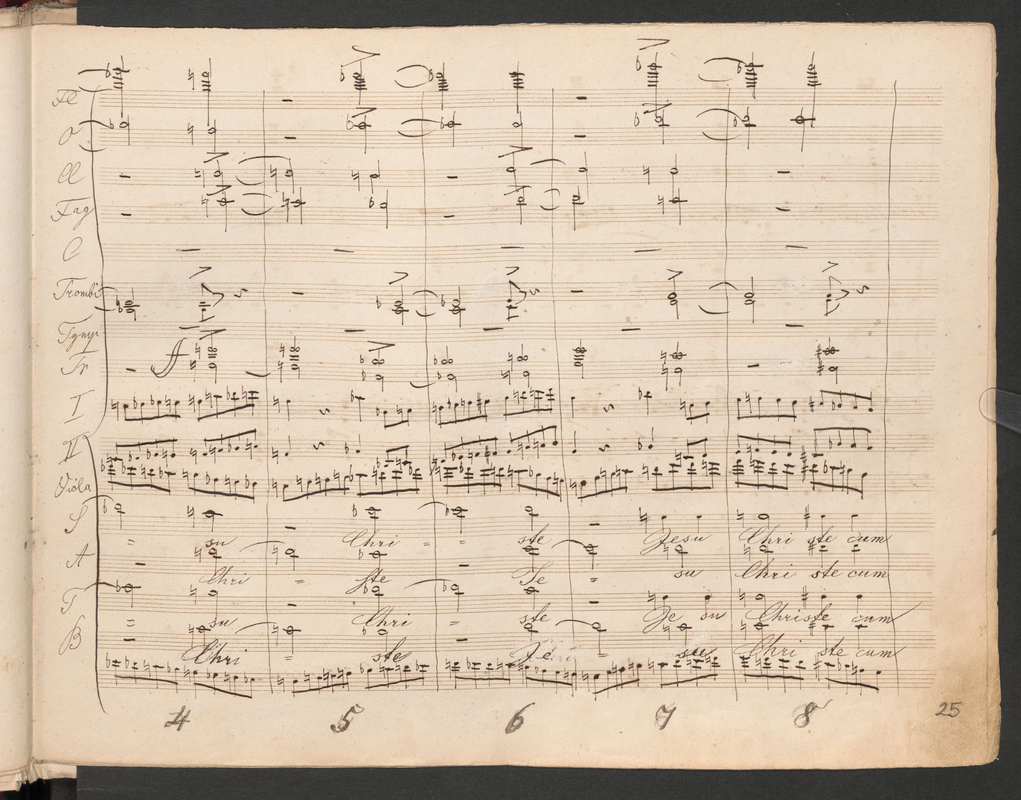 Fl
O
Cl
Fag
C
Trombi
Tymp
Tr
I
II
Viola
S
su Chri = = ste Jesu Chri ste cum
A
Chri = ste Je = su Chri ste cum
T
= su Chri = ste Je su Christe cum
B
Chri = ste Je su Chri ste cum
4 5 6 7 8
25